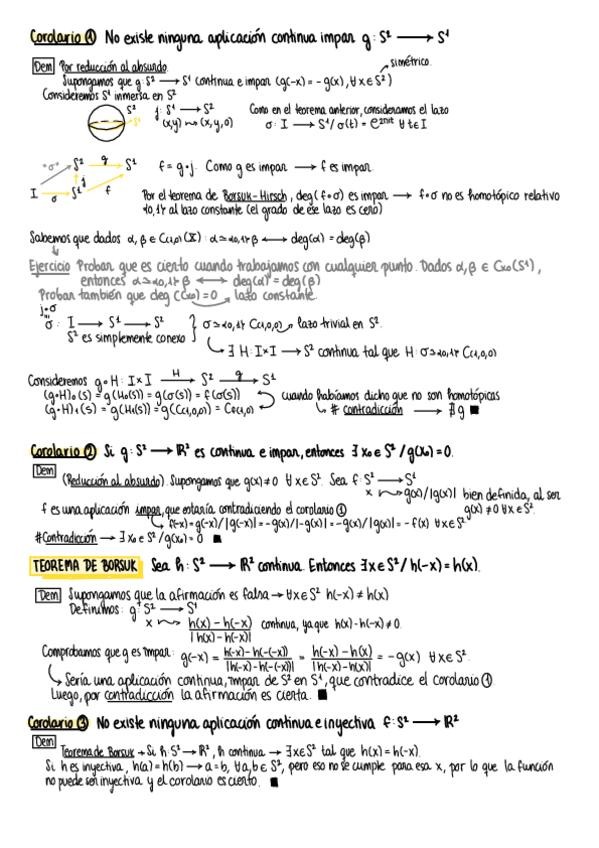 Corolario ① No existe ninguna aplicación continua impar g: S² ⟶ S¹
Dem Por reducción al absurdo.
simétrico.
Supongamos que g: S² ⟶ S¹ continua e impar (g(-x) = -g(x), ∀x∈S²)
Consideremos S¹ inmersa en S²
S² j: S¹ ⟶ S² Como en el teorema anterior, consideramos el lazo
S¹ (x,y) ⇝ (x,y,0) σ: I ⟶ S¹ / σ(t) = e^{2πit} ∀t∈I
"σ" S² g S¹ f = g∘j. Como g es impar ⟶ f es impar.
I σ S¹ j f
Por el teorema de Borsuk-Hirsch, deg(f∘σ) es impar ⟶ f∘σ no es homotópico relativo
{0,1} al lazo constante (el grado de ese lazo es cero)
Sabemos que dados α, β ∈ C(1,0)(X) : α ≃{0,1} β ⟷ deg(α) = deg(β)
Ejercicio Probar que es cierto cuando trabajamos con cualquier punto. Dados α, β ∈ Cx0(S¹),
entonces α ≃{0,1} β ⟷ deg(α) = deg(β)
Probar también que deg(Cx0) = 0 lazo constante.
j∘σ
"σ: I ⟶ S¹ ⟶ S² } σ ≃{0,1} C(1,0,0) lazo trivial en S².
S² es simplemente conexo
∃ H: I×I ⟶ S² continua tal que H: σ ≃{0,1} C(1,0,0)
Consideremos g∘H: I×I H⟶ S² g⟶ S¹
(g∘H)₀(s) = g(H₀(s)) = g(σ(s)) = f(σ(s)) cuando habíamos dicho que no son homotópicas
(g∘H)₁(s) = g(H₁(s)) = g(C(1,0,0)) = Cf(1,0) # contradicción ⟶ ∄g ■
Corolario ② Si g: S² ⟶ ℝ² es continua e impar, entonces ∃ x₀ ∈ S² / g(x₀) = 0.
Dem
(Reducción al absurdo). Supongamos que g(x) ≠ 0 ∀x∈S². Sea f: S² ⟶ S¹
x ⇝ g(x)/|g(x)| bien definida, al ser
g(x) ≠ 0 ∀x∈S².
f es una aplicación impar, que estaría contradiciendo el corolario ①
f(-x) = g(-x)/|g(-x)| = -g(x)/|-g(x)| = -g(x)/|g(x)| = -f(x) ∀x∈S²
#Contradicción ⟶ ∃ x₀ ∈ S² / g(x₀) = 0 ■
TEOREMA DE BORSUK Sea h: S² ⟶ ℝ² continua. Entonces ∃x∈S² / h(-x) = h(x).
Dem Supongamos que la afirmación es falsa → ∀x∈S² h(-x) ≠ h(x)
Definimos: g: S² ⟶ S¹
x ⇝ h(x) - h(-x) / |h(x) - h(-x)| continua, ya que h(x) - h(-x) ≠ 0.
Comprobamos que g es impar: g(-x) = h(-x) - h(-(-x)) / |h(-x) - h(-(-x))| = h(-x) - h(x) / |h(-x) - h(x)| = -g(x) ∀x∈S².
Sería una aplicación continua, impar de S² en S¹, que contradice el corolario ①
Luego, por contradicción la afirmación es cierta. ■
Corolario ③ No existe ninguna aplicación continua e inyectiva f: S² ⟶ ℝ²
Dem
Teorema de Borsuk → Si h: S² → ℝ², h continua → ∃x∈S² tal que h(x) = h(-x).
Si h es inyectiva, h(a) = h(b) → a = b, ∀a,b∈S², pero eso no se cumple para esa x, por lo que la función
no puede ser inyectiva y el corolario es cierto. ■